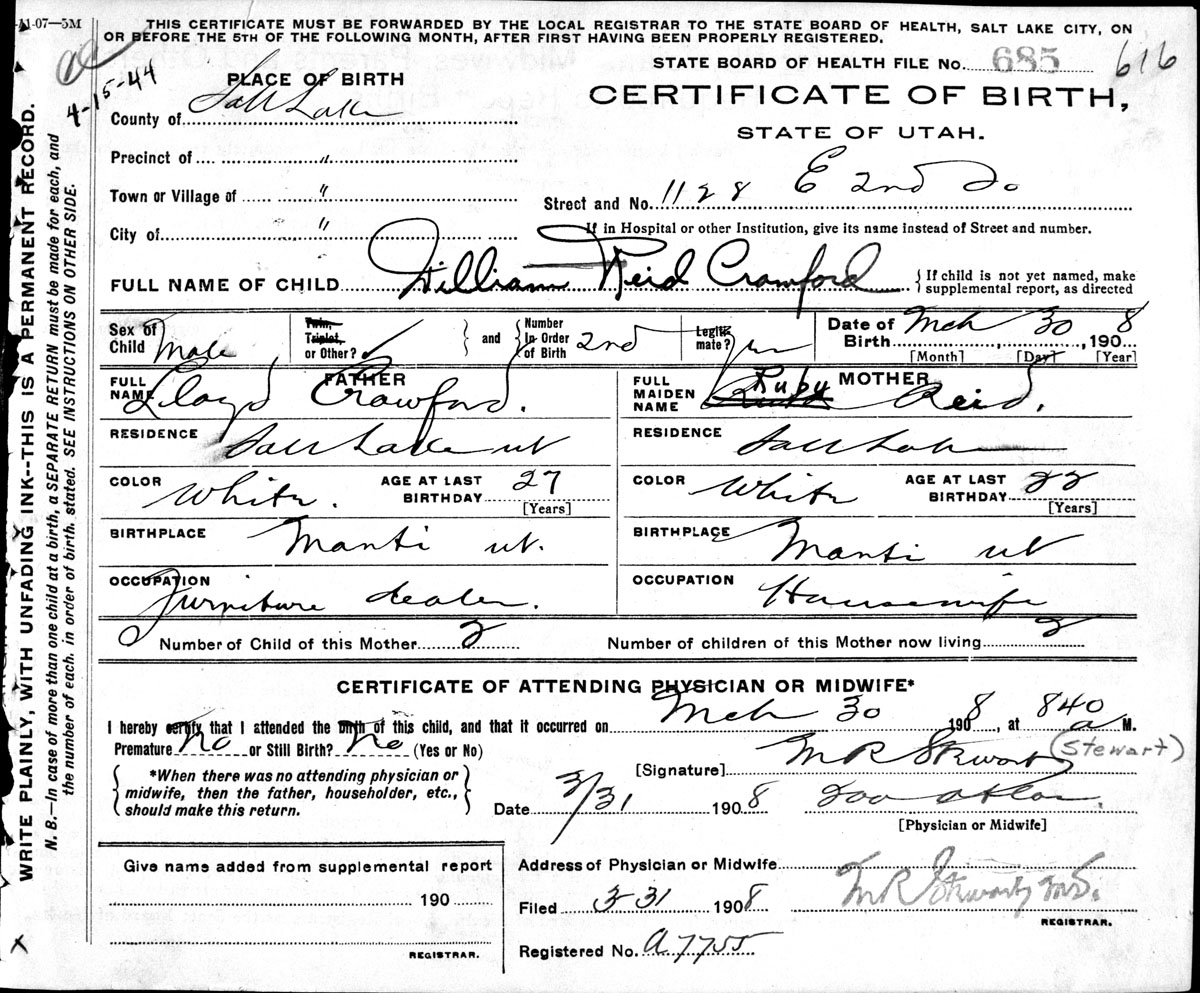 11-07—5M
THIS CERTIFICATE MUST BE FORWARDED BY THE LOCAL REGISTRAR TO THE STATE BOARD OF HEALTH, SALT LAKE CITY, ON
OR BEFORE THE 5TH OF THE FOLLOWING MONTH, AFTER FIRST HAVING BEEN PROPERLY REGISTERED.
STATE BOARD OF HEALTH FILE No. 685 616
4-15-44
PLACE OF BIRTH
CERTIFICATE OF BIRTH,
STATE OF UTAH.
County of Salt Lake
Precinct of "
Town or Village of "
Street and No. 1128 E 2nd So
City of "
If in Hospital or other Institution, give its name instead of Street and number.
FULL NAME OF CHILD William Reid Crawford
{If child is not yet named, make
supplemental report, as directed
Sex of Child Male
Twin, Triplet, or Other? ✓ } and { Number In Order of Birth 2nd
Legitimate?
Date of Birth Mch 30, 1908
[Month] [Day] [Year]
FATHER
FULL NAME Lloyd Crawford.
MOTHER
FULL MAIDEN NAME Ruby Reid.
RESIDENCE Salt Lake ut
RESIDENCE Salt Lake
COLOR White. AGE AT LAST BIRTHDAY 27 [Years]
COLOR White AGE AT LAST BIRTHDAY 22 [Years]
BIRTHPLACE Manti ut.
BIRTHPLACE Manti ut
OCCUPATION Furniture dealer.
OCCUPATION Housewife
Number of Child of this Mother 2 Number of children of this Mother now living 2
CERTIFICATE OF ATTENDING PHYSICIAN OR MIDWIFE*
I hereby certify that I attended the birth of this child, and that it occurred on Mch 30 1908, at 840 a M.
Premature No or Still Birth? No (Yes or No)
*When there was no attending physician or
midwife, then the father, householder, etc.,
should make this return.
[Signature] M R Stewart (Stewart)
Date 3/31 1908
[Physician or Midwife]
Give name added from supplemental report
190
REGISTRAR.
Address of Physician or Midwife
Filed 3-31 1908 M R Stewart M.D.
REGISTRAR.
Registered No. A 7755
WRITE PLAINLY, WITH UNFADING INK--THIS IS A PERMANENT RECORD.
N. B.—In case of more than one child at a birth, a SEPARATE RETURN must be made for each, and
the number of each, in order of birth, stated. SEE INSTRUCTIONS ON OTHER SIDE.
X